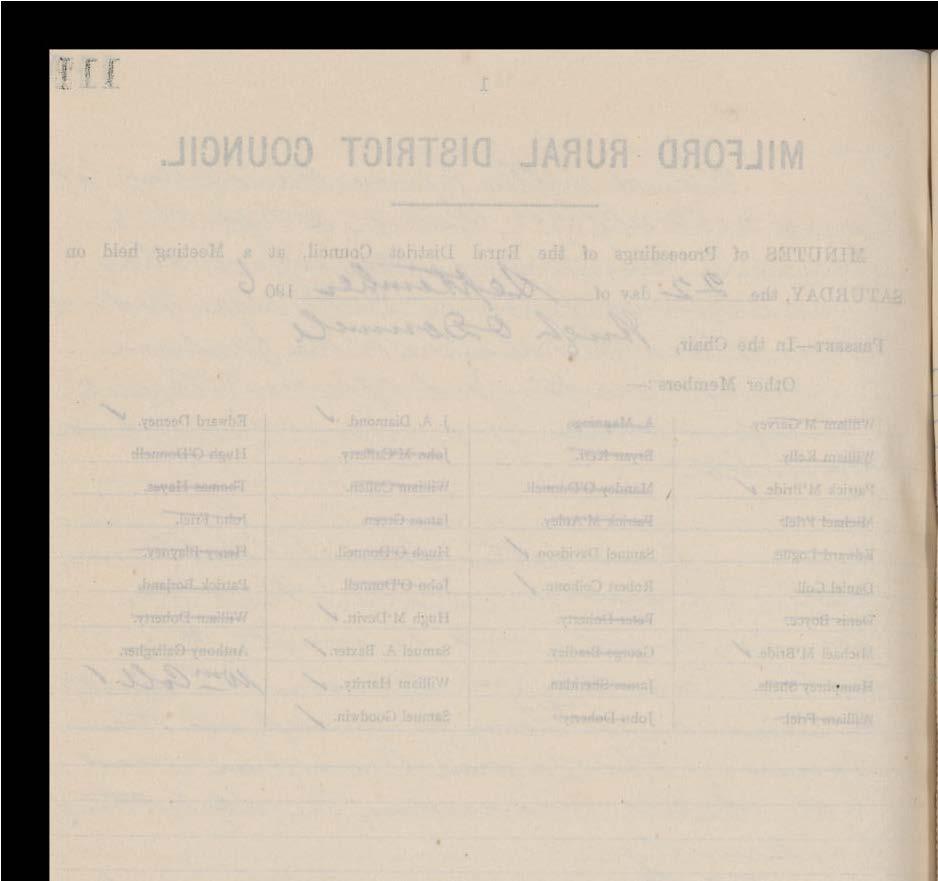 1
MILFORD RURAL DISTRICT COUNCIL.
MINUTES of Proceedings of the Rural District Council, at a Meeting held on
SATURDAY, the 22 day of September 1906
PRESENT—In the Chair, Hugh O'Donnell
Other Members:—
William M'Garvey A. Manning. J. A. Diamond. ✓ Edward Deeney. ✓
William Kelly. Bryan Kerr. John M'Cafferty. Hugh O'Donnell
Patrick M'Bride. ✓ Mandey O'Donnell William Cullen. Thomas Hayes.
Michael Friel. Patrick M'Ateer. James Green. John Friel.
Edward Logue. Samuel Davidson. ✓ Hugh O'Donnell. Henry Blayney.
Daniel Coll. Robert Colhoun. ✓ John O'Donnell. Patrick Borland.
Denis Boyce. Peter Doherty. Hugh M'Devitt. ✓ William Doherty.
Michael M'Bride. ✓ George Bradley. Samuel A. Baxter. ✓ Anthony Gallagher.
Humphrey Sheils. James Sheridan. William Harrity. ✓ Wm Coll ✓
William Friel. John Doherty. Samuel Goodwin. ✓